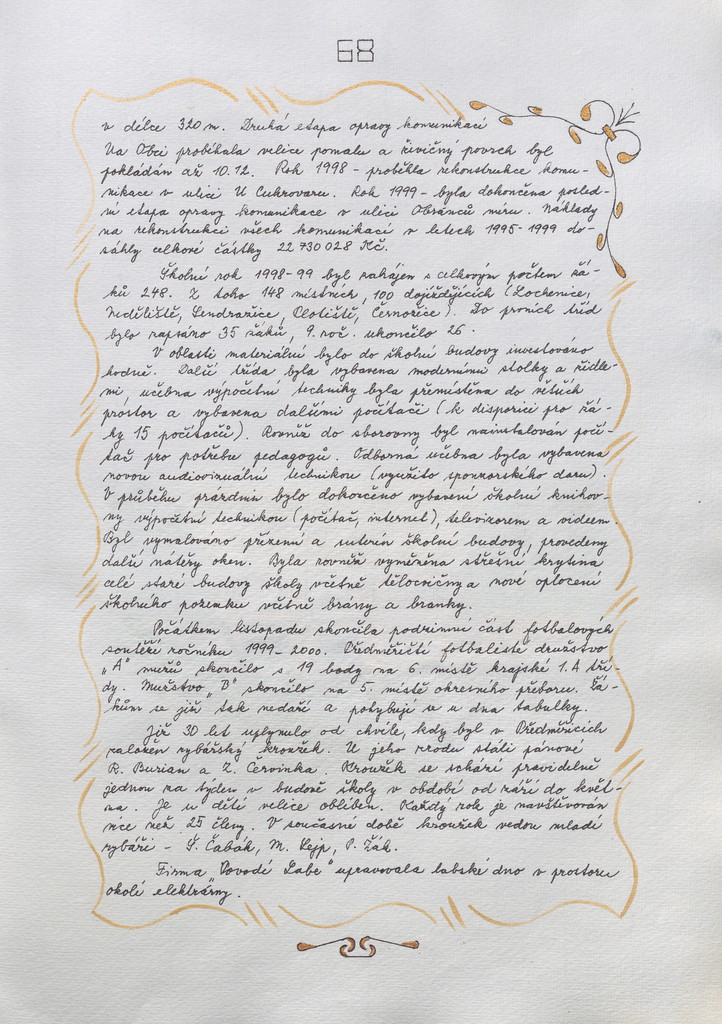 68
v délce 320 m. Druhá etapa opravy komunikací
Na Obci probíhala velice pomalu a živičný povrch byl
pokládán až 10.12. Rok 1998 - proběhla rekonstrukce komu-
nikace v ulici U Cukrovaru. Rok 1999 - byla dokončena posled-
ní etapa opravy komunikace v ulici Obránců míru. Náklady
na rekonstrukci všech komunikací v letech 1995-1999 do-
sáhly celkové částky 22 730 028 Kč.
Školní rok 1998-99 byl zahájen s celkovým počtem žá-
ků 248. Z toho 148 místních, 100 dojíždějících (Lochenice,
Neděliště, Sendražice, Plotiště, Černožice). Do prvních tříd
bylo zapsáno 35 žáků, 9. roč. ukončilo 26.
V oblasti materiální bylo do školní budovy investováno
hodně. Další třída byla vybavena moderními stolky a židle-
mi, učebna výpočetní techniky byla přemístěna do větších
prostor a vybavena dalšími počítači (k dispozici pro žá-
ky 15 počítačů). Rovněž do sborovny byl nainstalován počí-
tač pro potřebu pedagogů. Odborná učebna byla vybavena
novou audiovizuální technikou (využito sponzorského daru).
V průběhu prázdnin bylo dokončeno vybavení školní knihov-
ny výpočetní technikou (počítač, internet), televizorem a videem.
Byl vymalováno přízemí a suterén školní budovy, provedeny
další nátěry oken. Byla rovněž vyměněna střešní krytina
celé staré budovy školy včetně tělocvičny a nové oplocení
školního pozemku včetně brány a branky.
Počátkem listopadu skončila podzimní část fotbalových
soutěží ročníku 1999-2000. Předměřičtí fotbalisté družstvo
„A" mužů skončilo s 19 body na 6. místě krajské 1.A tří-
dy. Mužstvo „B" skončilo na 5. místě okresního přeboru. Žá-
kům se již tak nedaří a pohybují se u dna tabulky.
Již 30 let uplynulo od chvíle, kdy byl v Předměřicích
založen rybářský kroužek. U jeho zrodu stáli pánové
R. Burian a Z. Červinka. Kroužek se schází pravidelně
jednou za týden v budově školy v období od září do květ-
na. Je u dětí velice oblíben. Každý rok je navštěvován
více než 25 členy. V současné době kroužek vedou mladí
rybáři - Š. Čabák, M. Lejp, P. Žák.
Firma „Povodí Labe" upravovala labské dno v prostoru
okolí elektrárny.